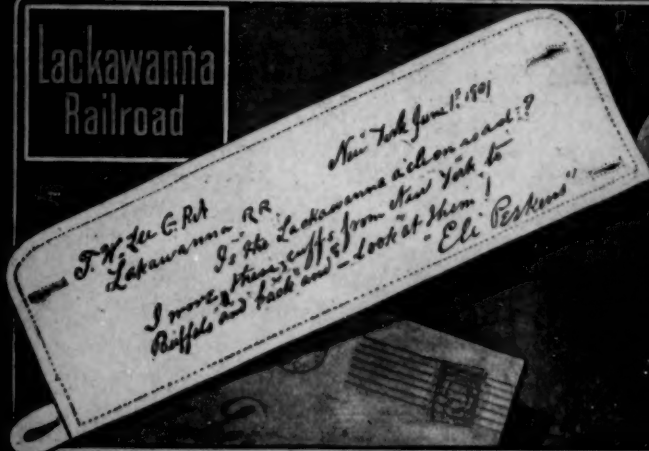 Lackawanna
Railroad
New York June 1st 1901
T. W. Lee G.P.A
Lakawanna RR
Is the Lackawanna a clean road?
I wore these cuffs from New York to
Buffalo and back and – look at them!
"Eli Perkins"